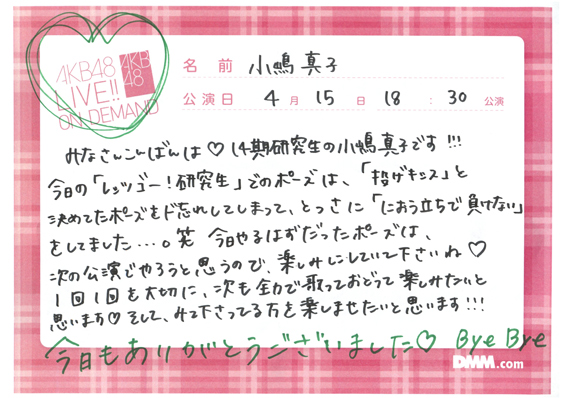 AKB48
LIVE!!
ON DEMAND
AKB
48
名 前 小嶋真子
公演日 4 月 15 日 18 : 30 公演
みなさんこんばんは♡14期研究生の小嶋真子です!!!
今日の「レッツゴー!研究生」でのポーズは、「投げキッス」と
決めてたポーズをド忘れしてしまって、とっさに「におう立ちで負けない」
をしてました…。笑 今日やるはずだったポーズは、
次の公演でやろうと思うので、楽しみにしていて下さいね♡
1回1回を大切に、次も全力で歌っておどって楽しみたいと
思います♡そして、みて下さってる方を楽しませたいと思います!!!
今日もありがとうございました♡ Bye Bye
DMM.com